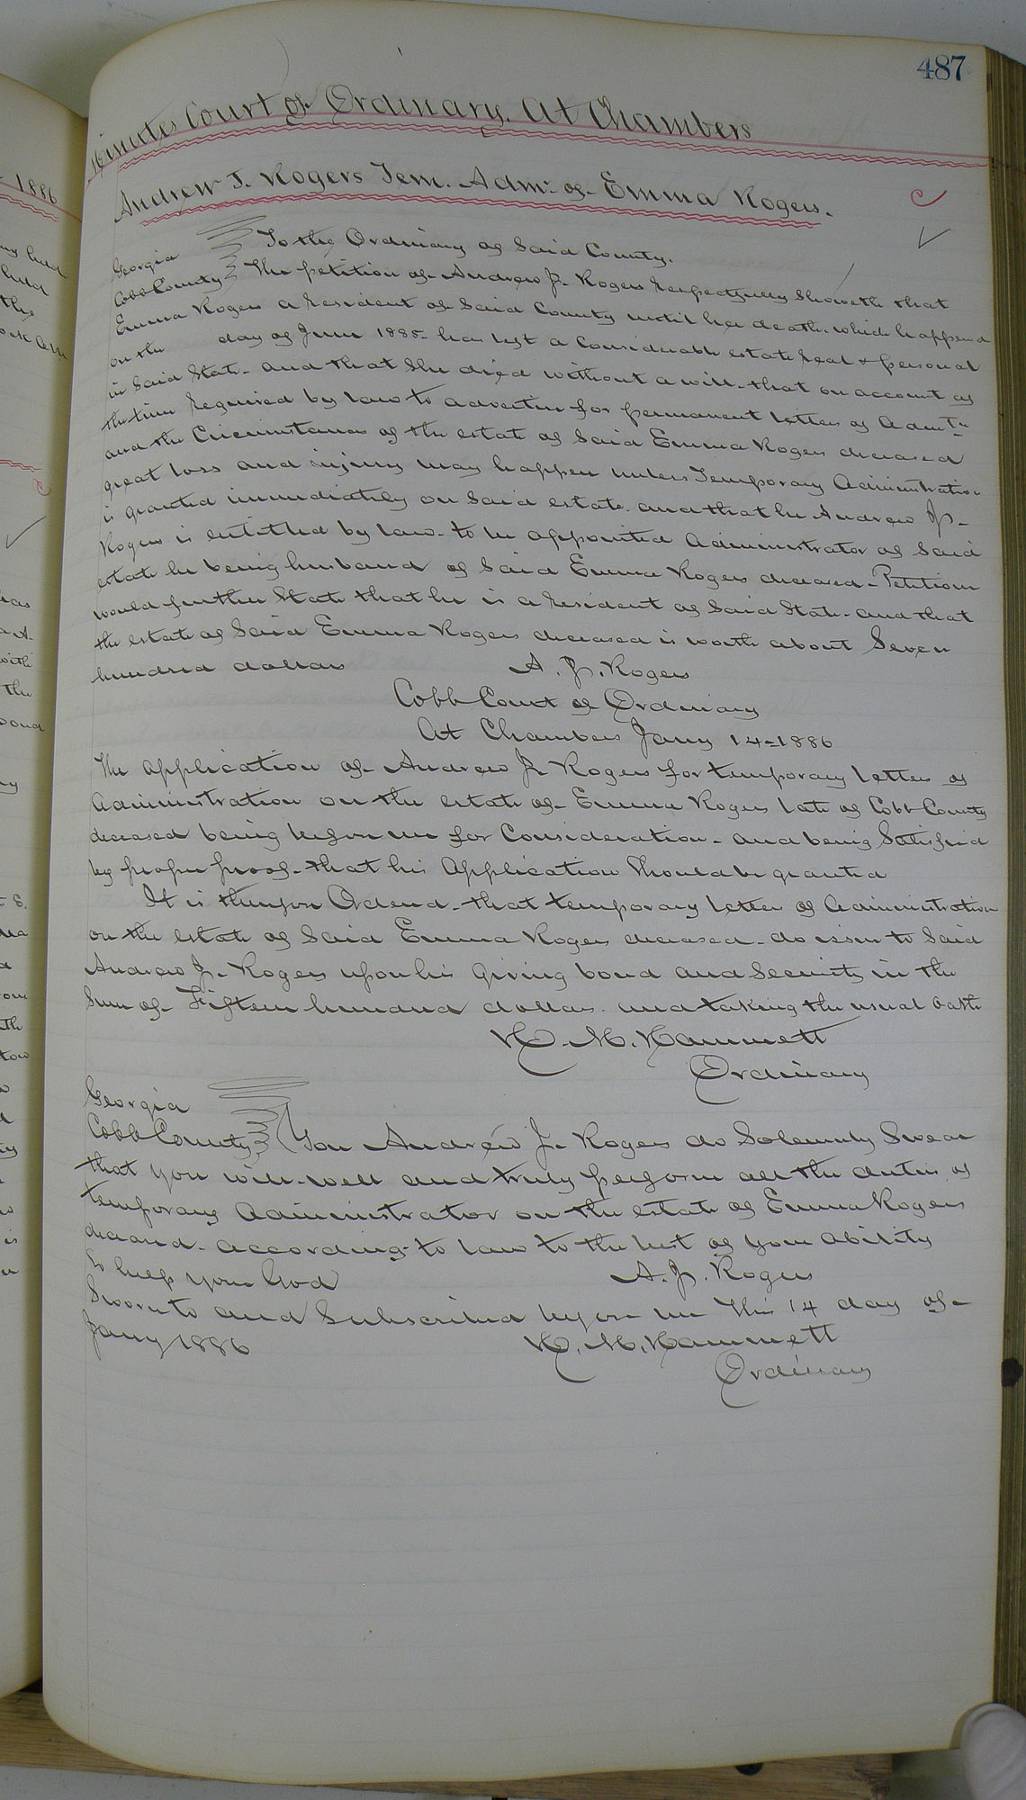 487
Minutes Court of Ordinary. At Chambers
Andrew J. Rogers Tem. Admr. of Emma Rogers.
Georgia
Cobb County
To the Ordinary of Said County.
The petition of Andrew J. Rogers respectfully Showeth that
Emma Rogers a resident of Said County until her death. which happend
on the day of June 1885 has left a Considerable estate real & personal
in Said State. and that She died without a will. that on account of
the time required by law to advertise for permanent letters of Admtn
and the Circumstances of the estate of Said Emma Rogers deceased
great loss and injury may happen unless Temporary Administration
is granted immediately on Said estate. and that he Andrew J.
Rogers is entitled by law to be appointed Administrator of Said
estate he being husband of Said Emma Rogers deceased. Petitioner
would further State that he is a resident of Said State. and that
the estate of Said Emma Rogers deceased is worth about Seven
hundred dollars
A. J. Rogers
Cobb Court of Ordinary
At Chambers Jany 14-1886
The application of Andrew J. Rogers for temporary letters of
administration on the estate of Emma Rogers late of Cobb County
deceased being before me for Consideration. and being Satisfied
by proper proof. that his Application Should be granted
It is therefore Ordered. that temporary letters of administration
on the estate of Said Emma Rogers deceased. do issue to Said
Andrew J. Rogers upon his giving bond and Security in the
Sum of Fifteen hundred dollars. and taking the usual oath
H. M. Hammett
Ordinary
Georgia
Cobb County
You Andrew J. Rogers do Solemnly Swear
that you will well and truly perform all the duties of
temporary administrator on the estate of Emma Rogers
deceased. according to law to the best of your ability
So help you God
A. J. Rogers
Sworn to and Subscribed before me This 14 day of
Jany 1886
H. M. Hammett
Ordinary